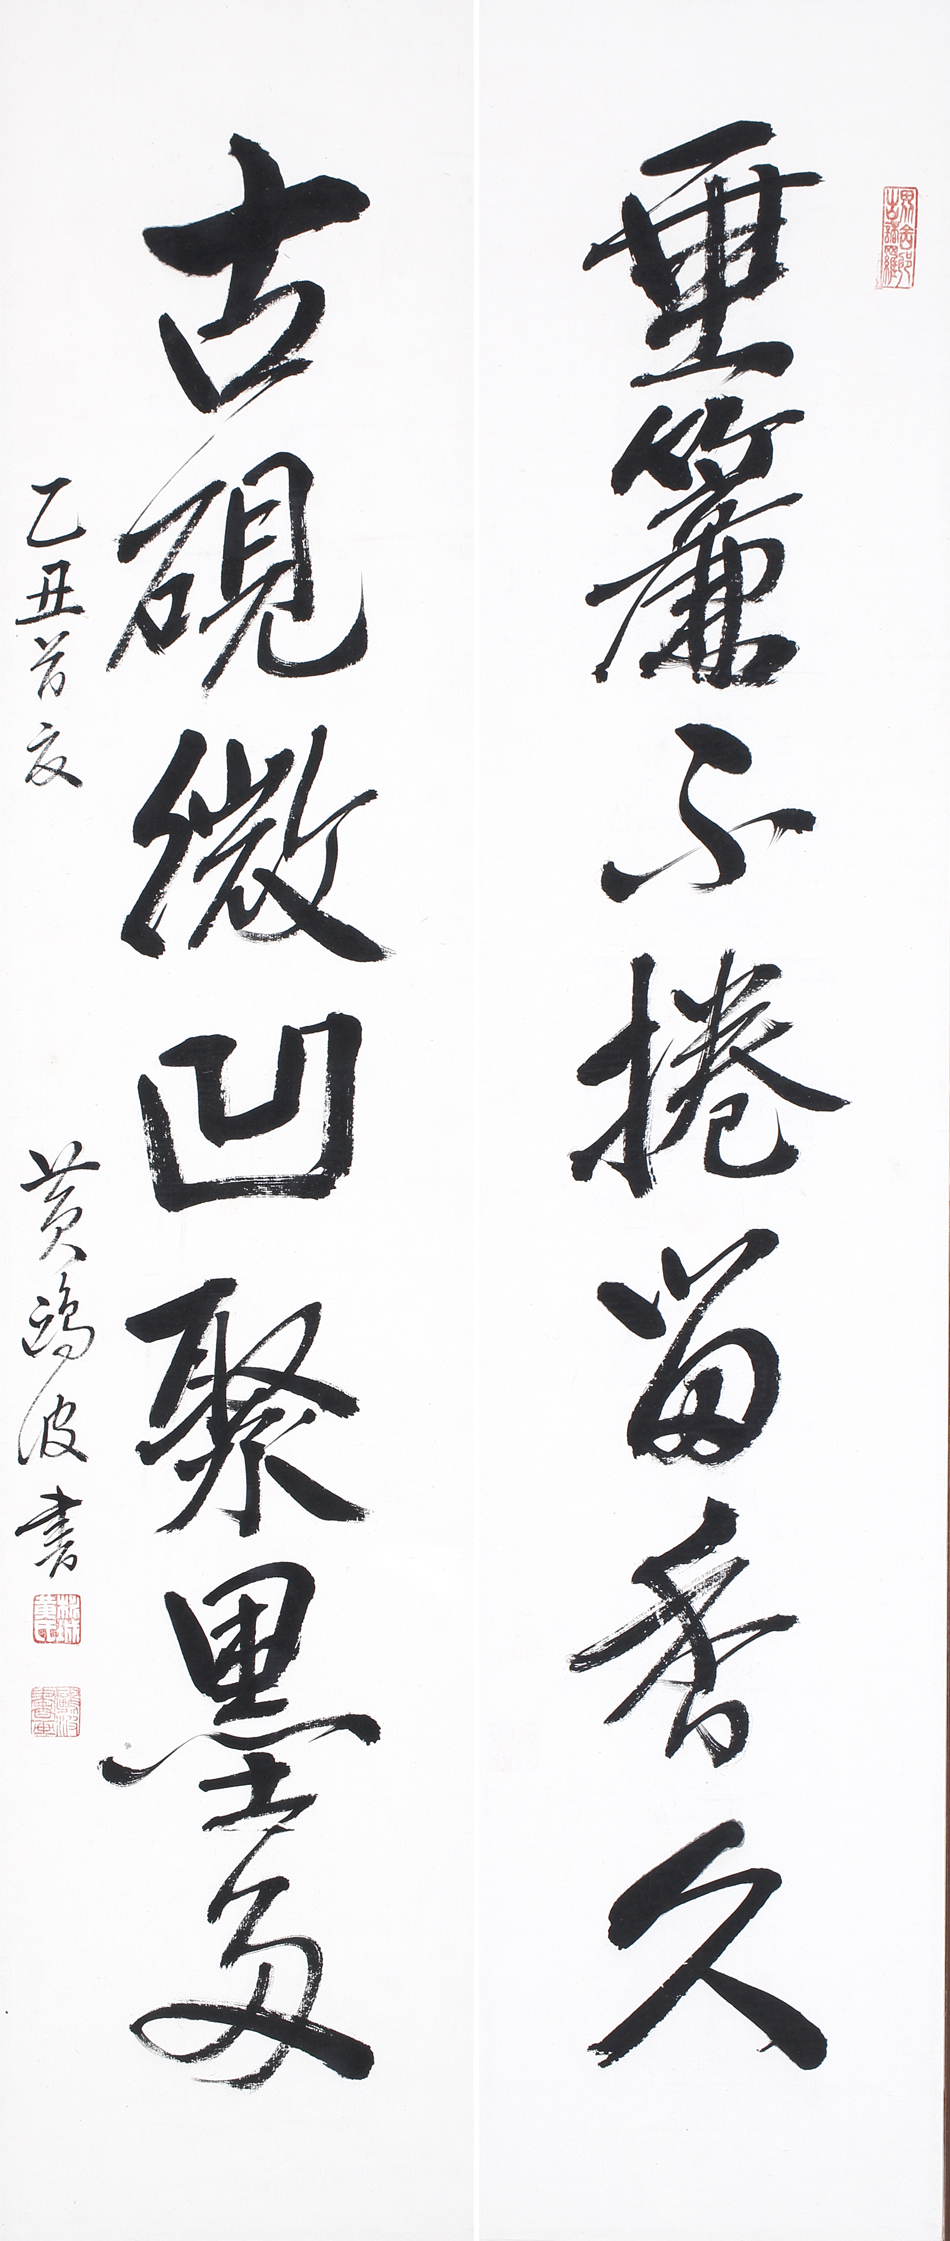 垂簾不捲留香久
古硯微凹聚墨多
乙丑首夏
黃鴻波書